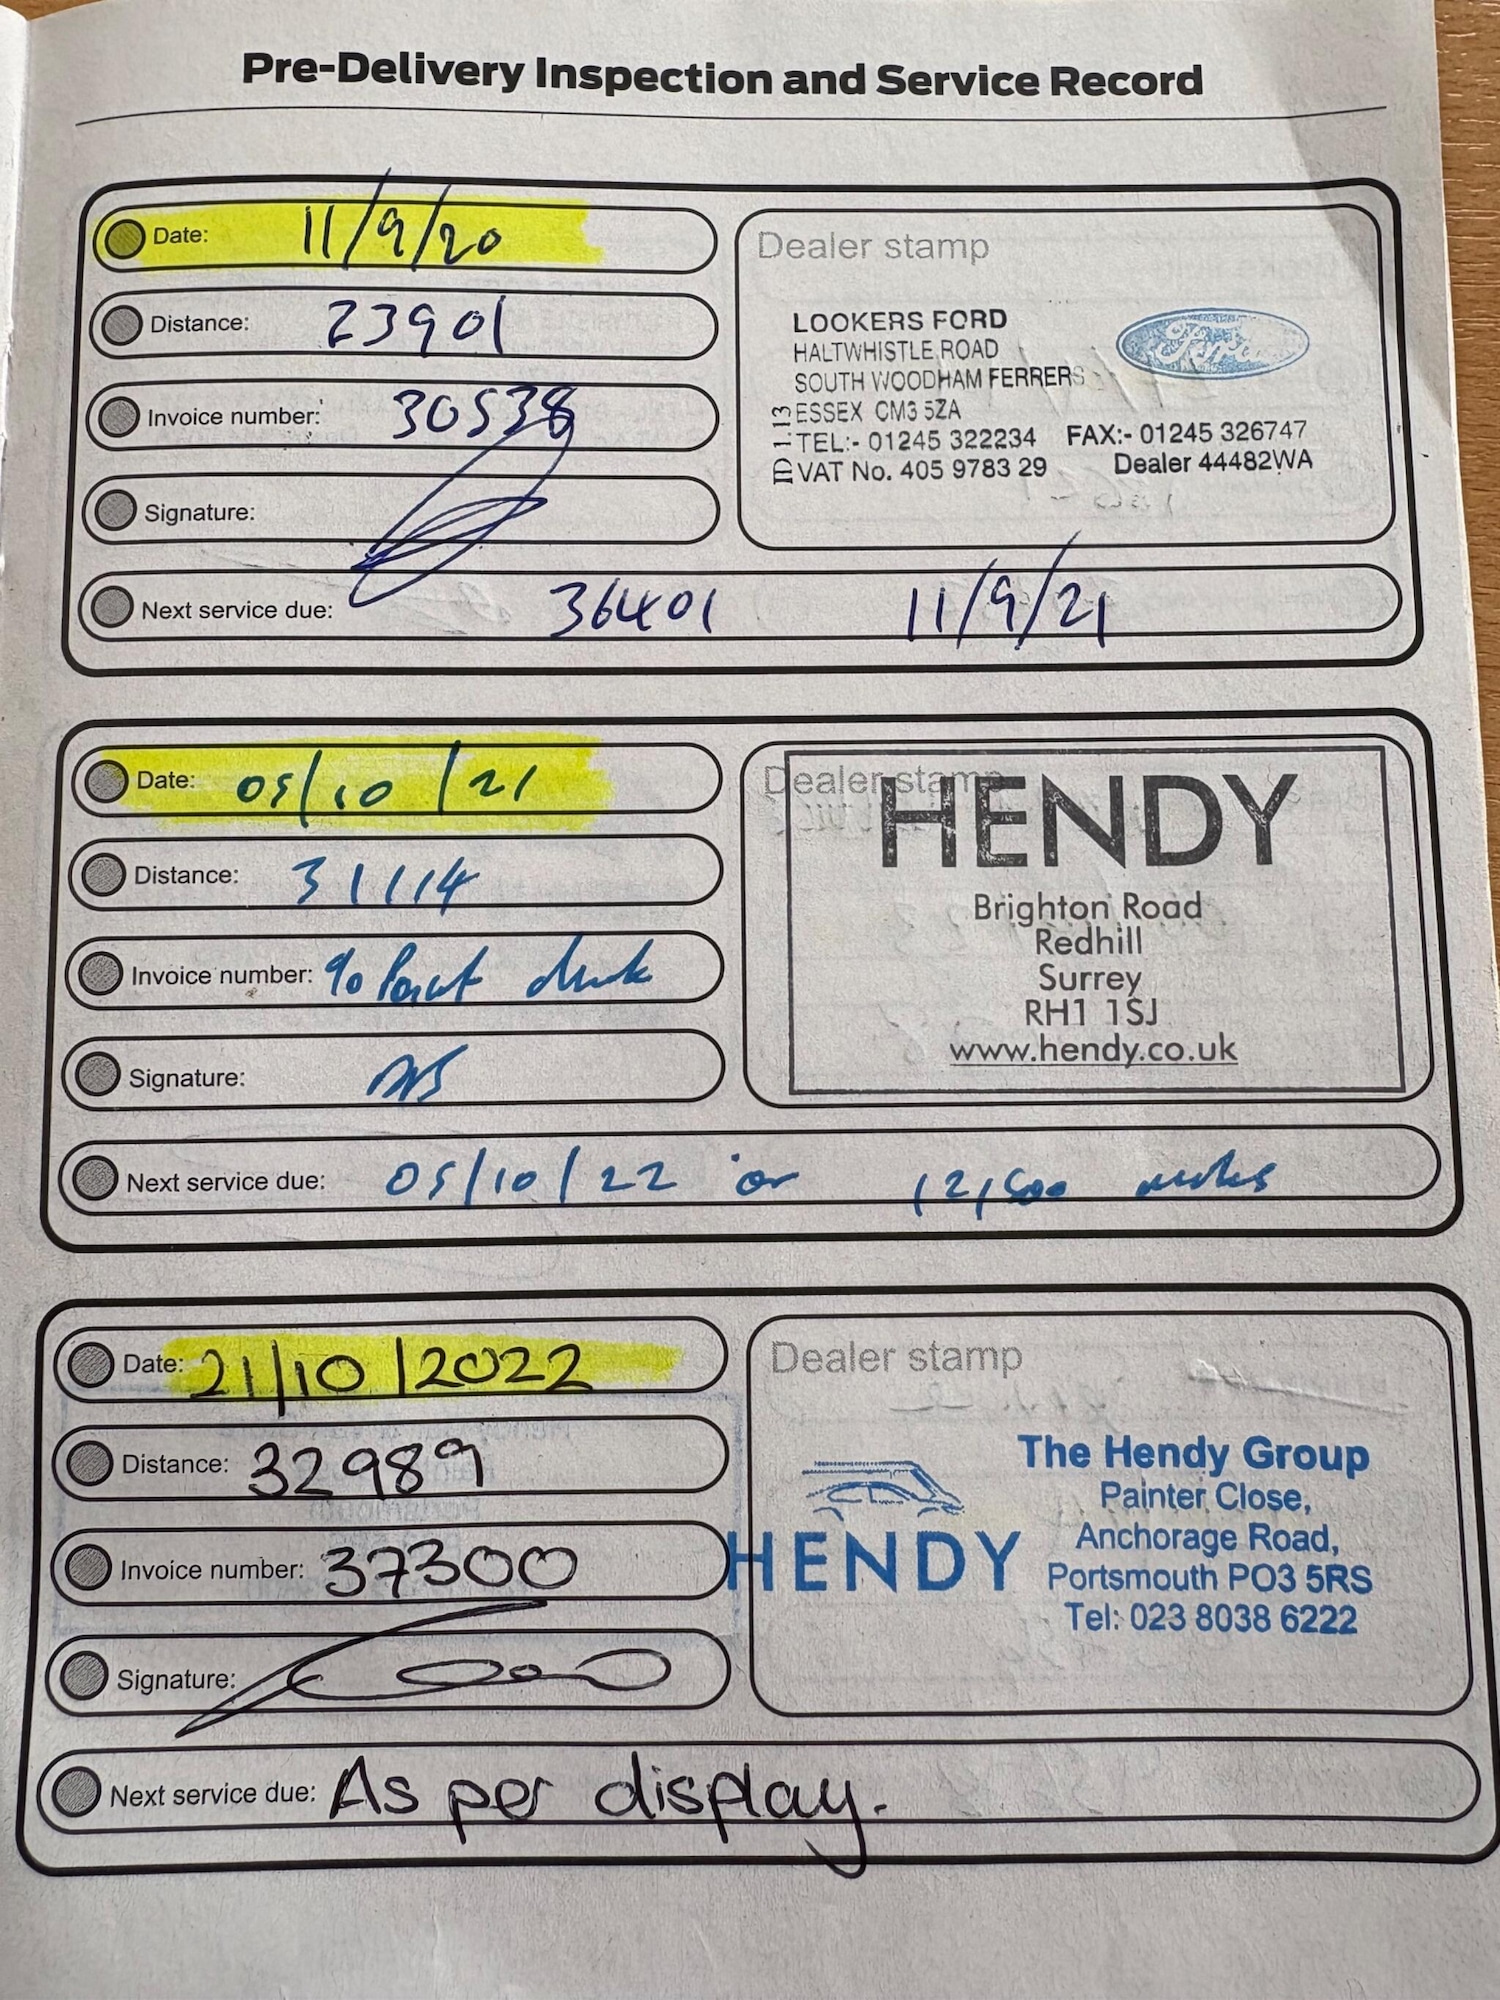 Pre-Delivery Inspection and Service Record
Date: 11/9/20
Distance: 23901
Invoice number: 30538
Signature:
Next service due: 36401 11/9/21
Dealer stamp
LOOKERS FORD
HALTWHISTLE ROAD
SOUTH WOODHAM FERRERS
ESSEX CM3 5ZA
TEL:- 01245 322234 FAX:- 01245 326747
VAT No. 405 9783 29 Dealer 44482WA
Ford
Date: 05/10/21
Distance: 31114
Invoice number:
Signature:
Next service due: 05/10/22 or 12,500 miles
Dealer stamp
HENDY
Brighton Road
Redhill
Surrey
RH1 1SJ
www.hendy.co.uk
Date: 21/10/2022
Distance: 32989
Invoice number: 37300
Signature:
Next service due: As per display.
Dealer stamp
HENDY
The Hendy Group
Painter Close,
Anchorage Road,
Portsmouth PO3 5RS
Tel: 023 8038 6222